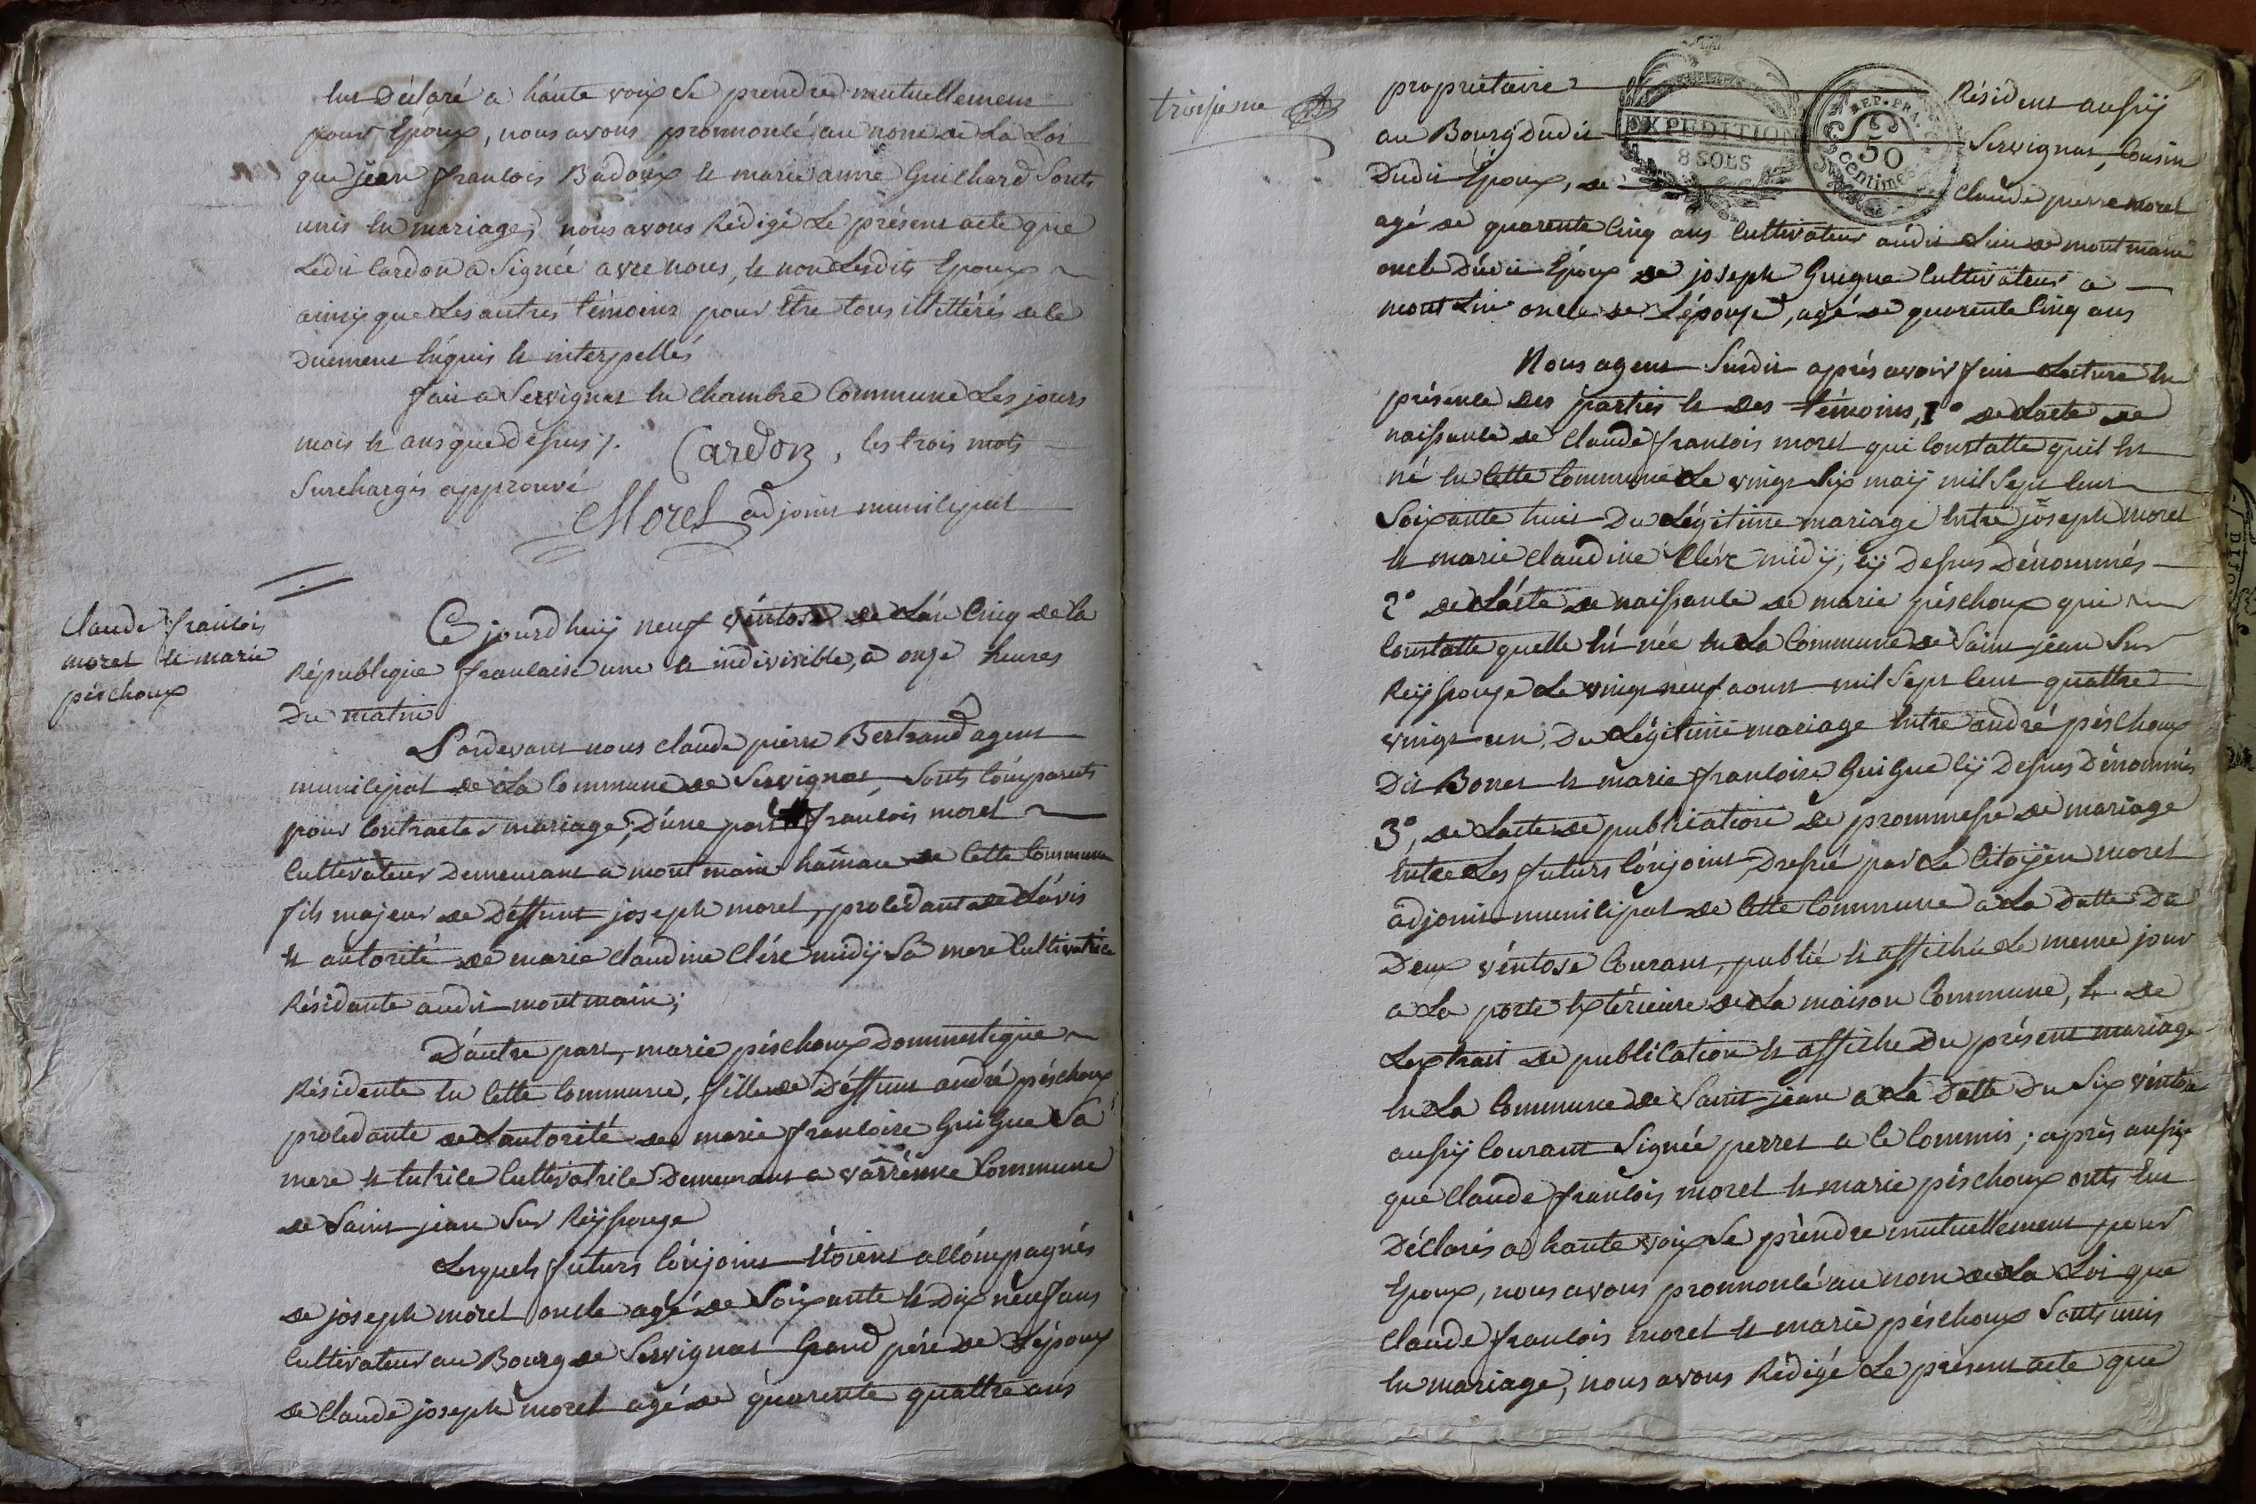 eut déclaré a haute voix se prendre mutuellement
pour Epoux, nous avons prononcé au nom de La Loi
que jean francois Badoux et marie anne Guichard sont
unis en mariage, nous avons Rédigé Le présent acte que
Ledit Cardon a Signée avec nous, et non Lesdits Epoux
ainsy que Les autres témoins pour Etre tous illittérés de ce
duement Enquis et interpellés
fait a Servignat en chambre Commune Les jours
mois et ans que dessus /. Cardon, les trois mots
Surchargés approuvé
Morel adjoint municipal
Claude francois
morel et marie
péschoux
Ce jourd'huy neuf véntose de L'an Cinq de la
République francaise une et indivisible, a onze heures
Du matin
Pardevant nous claude pierre Bertrand agent
municipal de La Commune de Servignat Sonts Comparuts
pour Contracter mariage, D'une part francois morel
Cultivateur Demeurant a montmain hamau de Cette Commune
fils majeur de Déffunt joseph morel, procédant de L'avis
et autorité de marie claudine Clérc midÿ Sa mere Cultivatrice
Résidante audit montmain;
D'autre part, marie péschoux Dommestique
Résidente en Cette Commune, fille de Déffunt andré péschoux
procédante de L'autorité de marie francoise GuiGue Sa
mere et tutrice Cultivatrice Demeurant a varrénne Commune
de Saint jean Sur Reÿssouze
Lesquels futurs Cónjoints étoient accómpagnés
de joseph morel oncle agé de Soixante et Dix neuf ans
Cultivateur au Bourg de Servignat Grand pére de L'époux
de Claude joseph morel agé de quarente quattre ans
troisieme
propriétaire Résident aussÿ
au Bourg dudit Servignat, Cousin
Dudit Epoux, de Claude pierre morel
agé de quarente Cinq ans Cultivateur audit Lieu de montmain
oncle Dudit Epoux de joseph Guigue Cultivateur a
oncle de L'épouse, agé de quarente Cinq ans
EXPEDITION
8 SOLS
REP. FRA.
50
Centimes
Nous agent Susdit aprés avoir fait Lecture en
présence des parties et des témoins, 1° de L'acte de
naissance de Claude francois morel qui Constatte qu'il est
né en Cette Commune Le vingt Six maÿ mil Sept Cent
Soixante huit Du Légitime mariage Entre joseph morel
et marie claudine Clérc midÿ, cÿ Dessus Dénommés
2° de L'acte de naissance de marie péschoux qui
Constatte quelle est née en La Commune de Saint jean Sur
Reÿssouze Le vingt neuf aoust mil Sept Cent quattre
vingt un, Du Légitime mariage Entre andré péschoux
Dit Bonet et marie francoise GuiGue cÿ Dessus Dénommés
3°, de L'acte de publication de prommesse de mariage
Entre Les futurs Cónjoints Dressé par Le Citoÿen morel
adjoint municipal de Cette Commune a La Datte Du
Deux véntose Courant, publié et affiché Le meme jour
a La porte Extérieure de La maison Commune, et de
L'extrait de publication et affiche Du présent mariage
en La Commune de Saint jean a La Datte Du Six véntose
aussÿ Courant Signée perret a ce Commis; aprés aussÿ
que Claude francois morel et marie péschoux onts Eut
Déclarés a haute voix Se prendre mutuellement pour
Epoux, nous avons prononcé au nom de La Loi que
Claude francois morel et marie péschoux Sonts unis
en mariage, nous avons Rédigé Le présent acte que